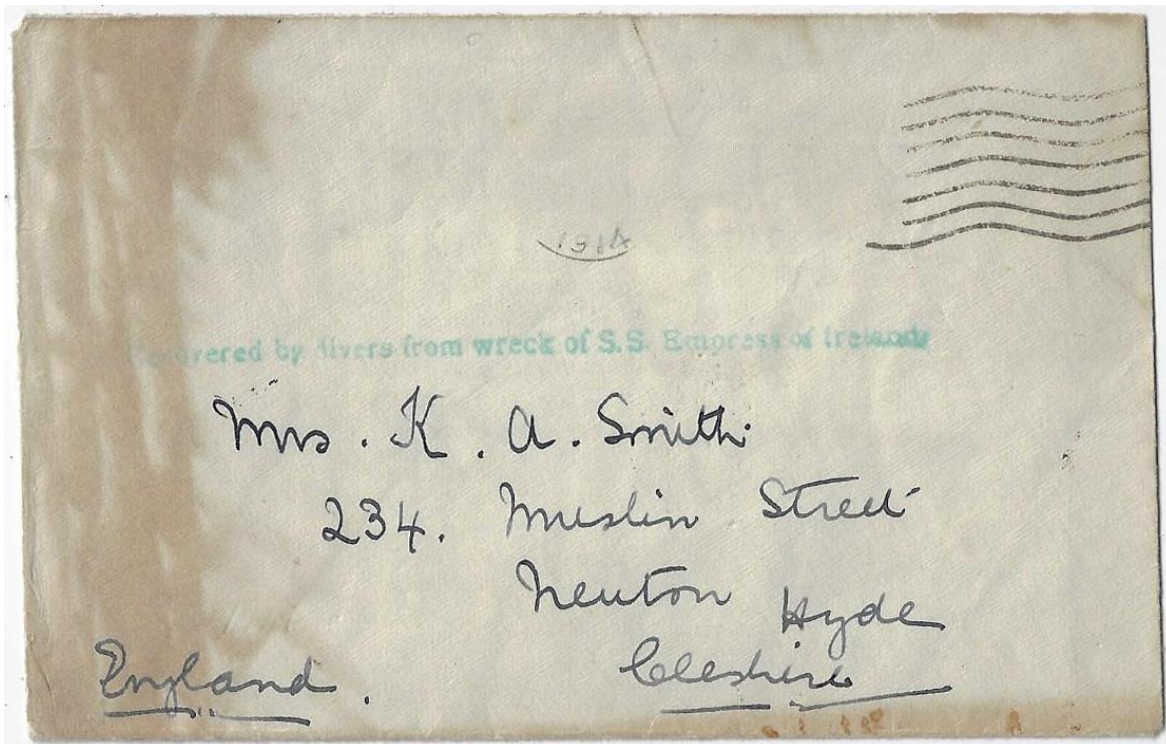 1914
Recovered by divers from wreck of S.S. Empress of Ireland
Mrs. K. A. Smith
234. Muslin Street
Newton Hyde
Cheshire
England.